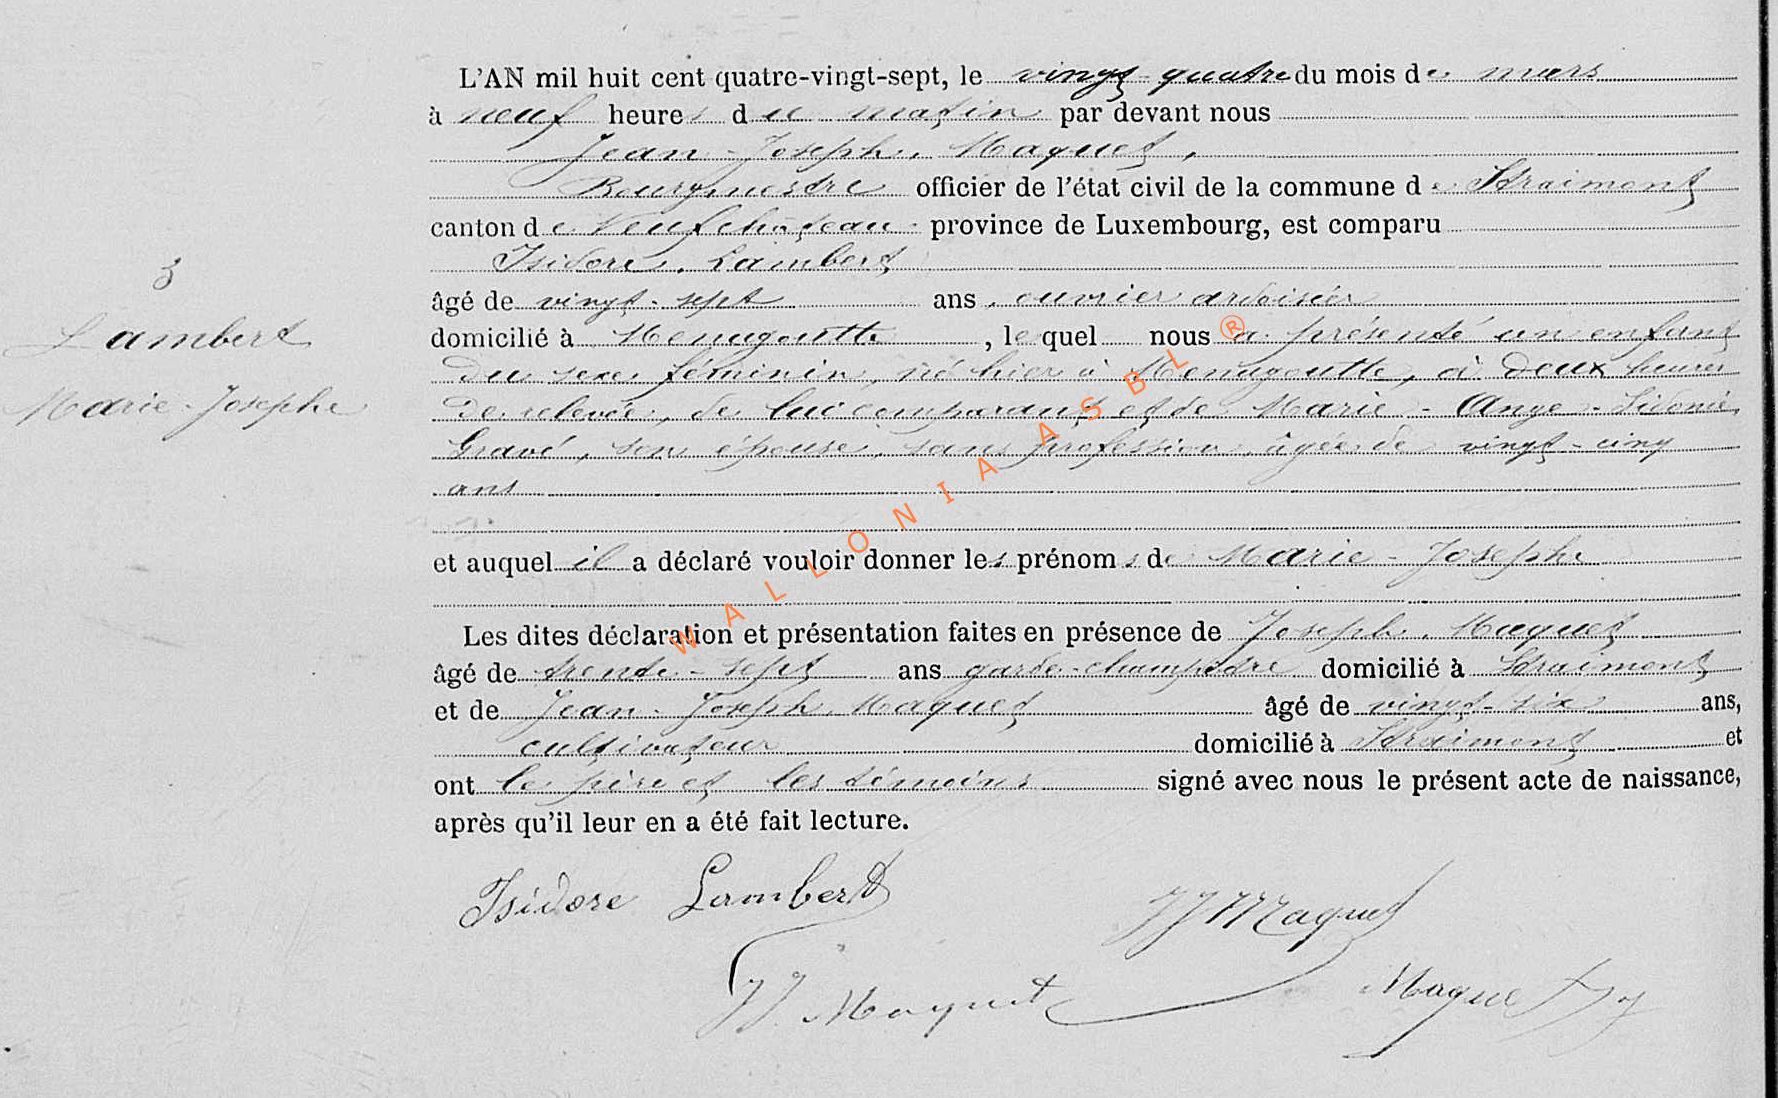 3
Lambert
Marie-Josephe
L'AN mil huit cent quatre-vingt-sept, le vingt-quatre du mois de mars
à neuf heures du matin par devant nous
Jean-Joseph Maquet,
Bourgmestre officier de l'état civil de la commune de Straimont
canton de Neufchâteau province de Luxembourg, est comparu
Isidore Lambert
âgé de vingt-sept ans, ouvrier ardoisier
domicilié à Menugoutte, lequel nous a présenté un enfant
du sexe féminin, né hier à Menugoutte, à deux heures
de relevée, de lui comparant et de Marie-Ange-Sidonie
Gravé, son épouse, sans profession, âgée de vingt-cinq
ans
et auquel il a déclaré vouloir donner les prénoms de Marie-Josephe
Les dites déclaration et présentation faites en présence de Joseph Maquet
âgé de trente-sept ans garde-champêtre domicilié à Straimont
et de Jean-Joseph Maquet âgé de vingt-six ans,
cultivateur domicilié à Straimont et
ont le père et les témoins signé avec nous le présent acte de naissance,
après qu'il leur en a été fait lecture.
Isidore Lambert JJ Maquet
JJ. Maquet Maquet
WALLONIA ASBL ®